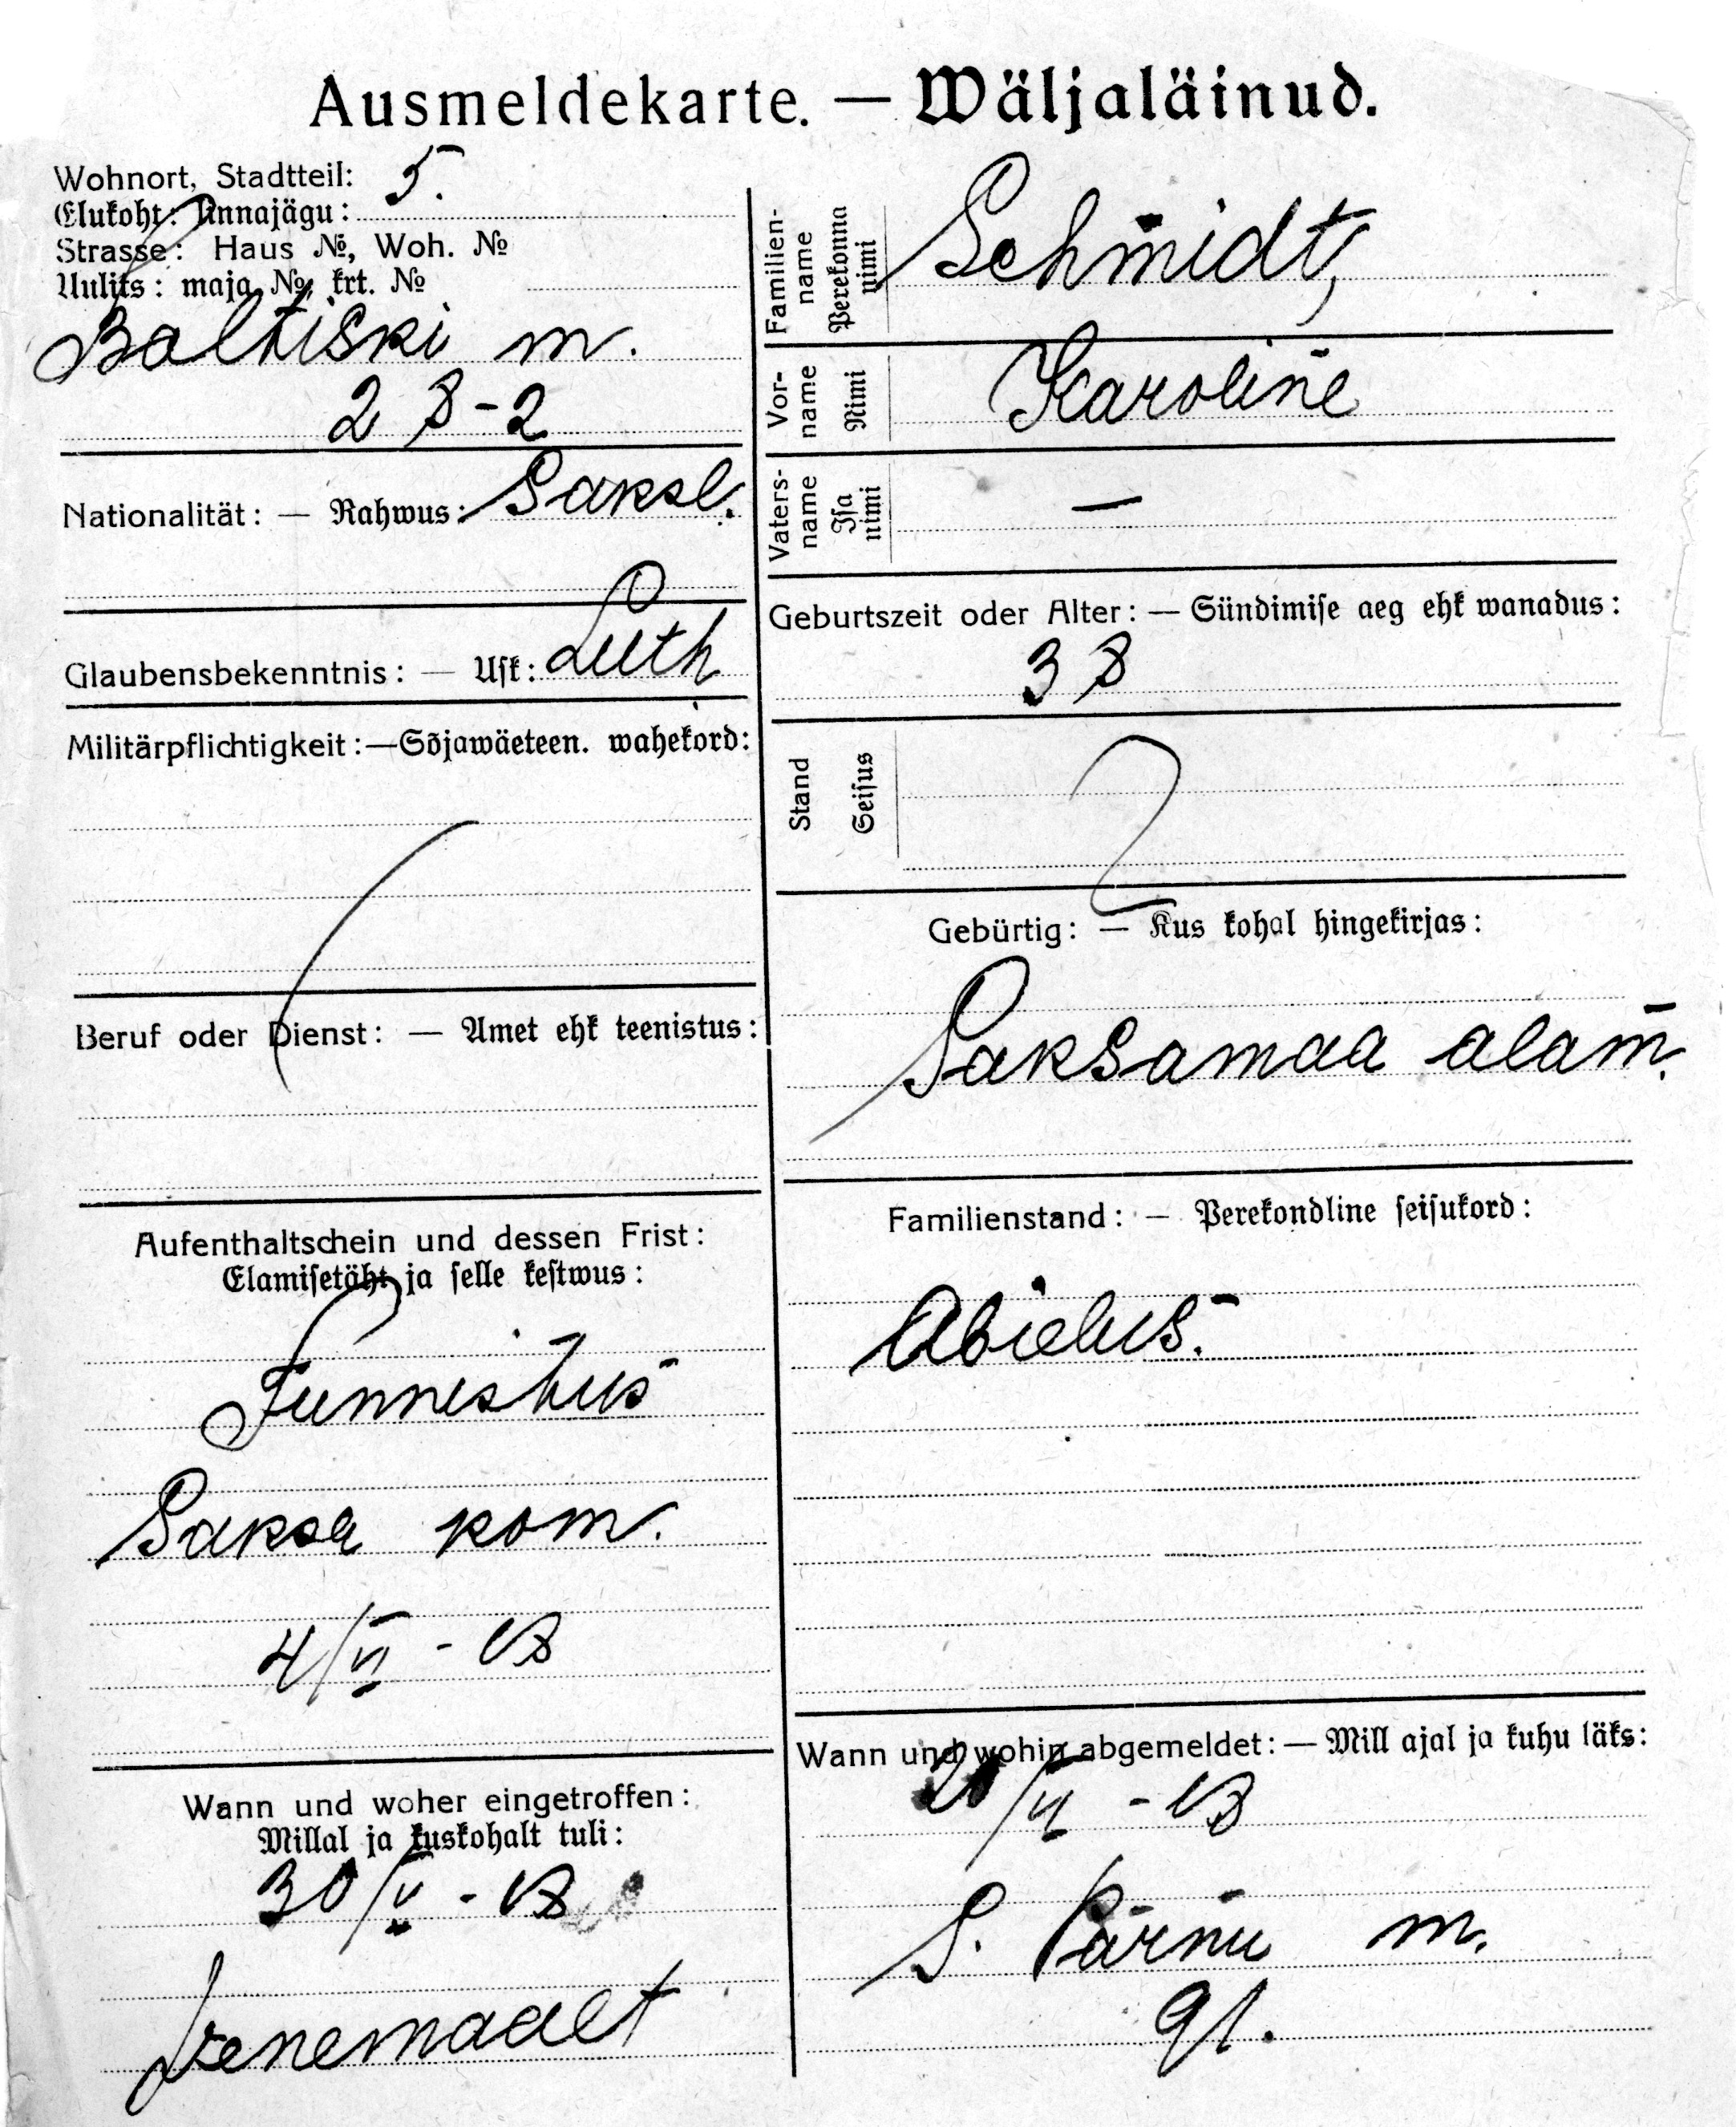 Ausmeldekarte. — Wäljaläinud.
Wohnort, Stadtteil: 5.
Elukoht: linnajägu:
Strasse: Haus №, Woh. №
Uulits: maja №, krt. №
Baltiski m.
28-2
Nationalität: — Rahwus: Saksl.
Glaubensbekenntnis: — Usk: Luth
Militärpflichtigkeit: — Sõjawäeteen. wahekord:
Beruf oder Dienst: — Amet ehk teenistus:
Aufenthaltschein und dessen Frist:
Elamisetäht ja selle kestwus:
Tunnistus
Saksa kom.
4/VI - 18
Wann und woher eingetroffen:
Millal ja kuskohalt tuli:
30/V - 18
Wenemaalt
Familienname Perekonna nimi Schmidt,
Vorname Nimi Karoline
Vatersname Isa nimi —
Geburtszeit oder Alter: — Sündimise aeg ehk wanadus:
38
Stand Seisus
Gebürtig: — Kus kohal hingekirjas:
Saksamaa alam.
Familienstand: — Perekondline seisukord:
Abielus.
Wann und wohin abgemeldet: — Mill ajal ja kuhu läks:
/VI - 18
S. Pärnu m.
91.